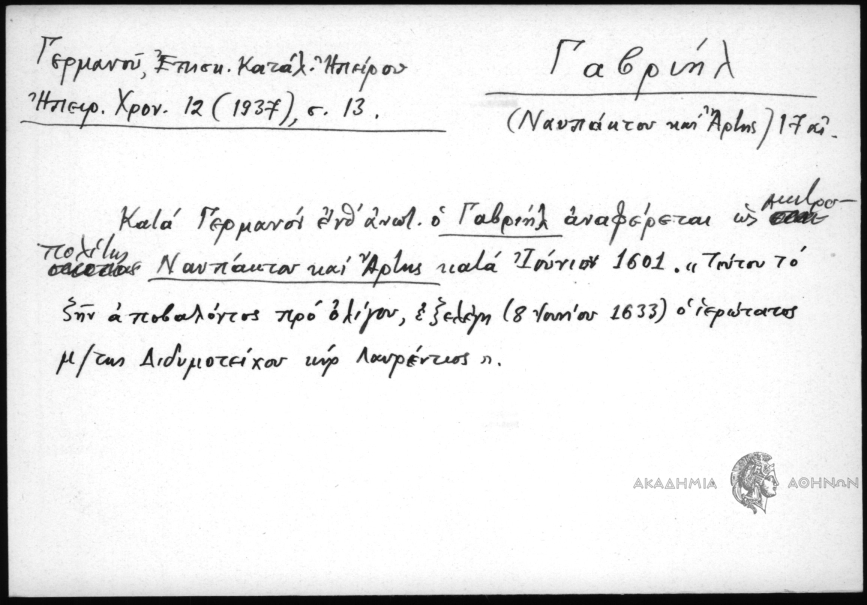 Γερμανοῦ, Ἐπισκ. Κατάλ. Ἠπείρου
Ἠπειρ. Χρον. 12 (1937), σ. 13.
Γαβριήλ
(Ναυπάκτου καί Ἄρτης) 17 αἰ.
Κατά Γερμανόν ἐνθ' ἀνωτ. ὁ Γαβριήλ ἀναφέρεται ὡς μητρο-
πολίτης Ναυπάκτου καί Ἄρτης κατά Ἰούνιον 1601. "Τούτου τό
ζῆν ἀποβαλόντος πρό ὀλίγου, ἐξελέγη (8 Ἰουνίου 1633) ὁ ἱερώτατος
μ/της Διδυμοτείχου κύρ Λαυρέντιος".
ΑΚΑΔΗΜΙΑ ΑΘΗΝΩΝ